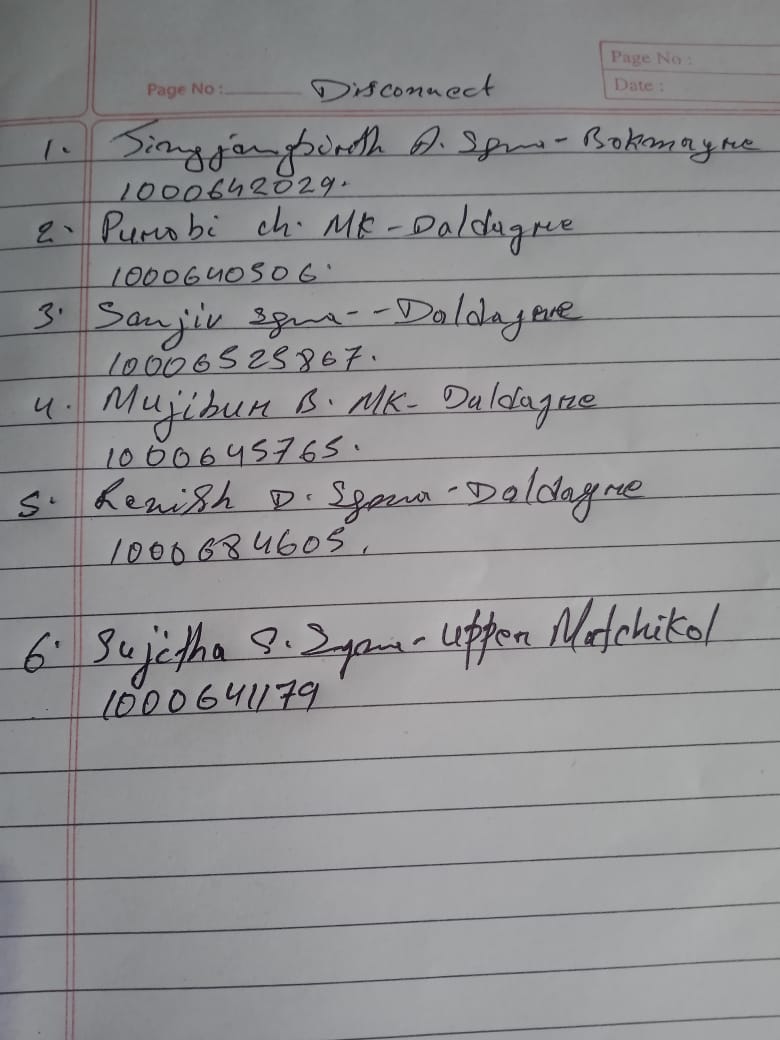 Page No:
Date:
Page No: Disconnect
1. A. Sgma - Bokmagre
1000642029.
2. Purobi ch. MK - Daldagre
1000640506.
3. Sanjiv Sgma - - Daldagre
10006525867.
4. Mujibur B. MK - Daldagre
1000645765.
5. Renish D. Sgma - Daldagre
1000684605.
6. Sujitha S. Sgma - Upper Matchikol
1000641179